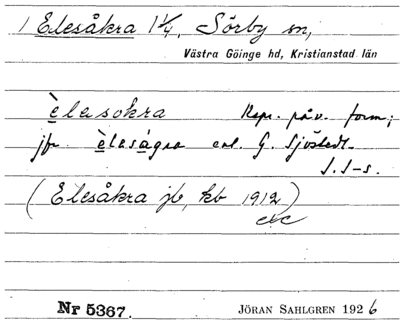 1 Elesåkra 1 1/4, Sörby sn,
Västra Göinge hd, Kristianstad län
èlasokra Rspr. påv. form;
jfr èlaságra enl. G. Sjöstedt.
J. S-s.
(Elesåkra jb, kb 1912)
Nr 5367. JÖRAN SAHLGREN 1926